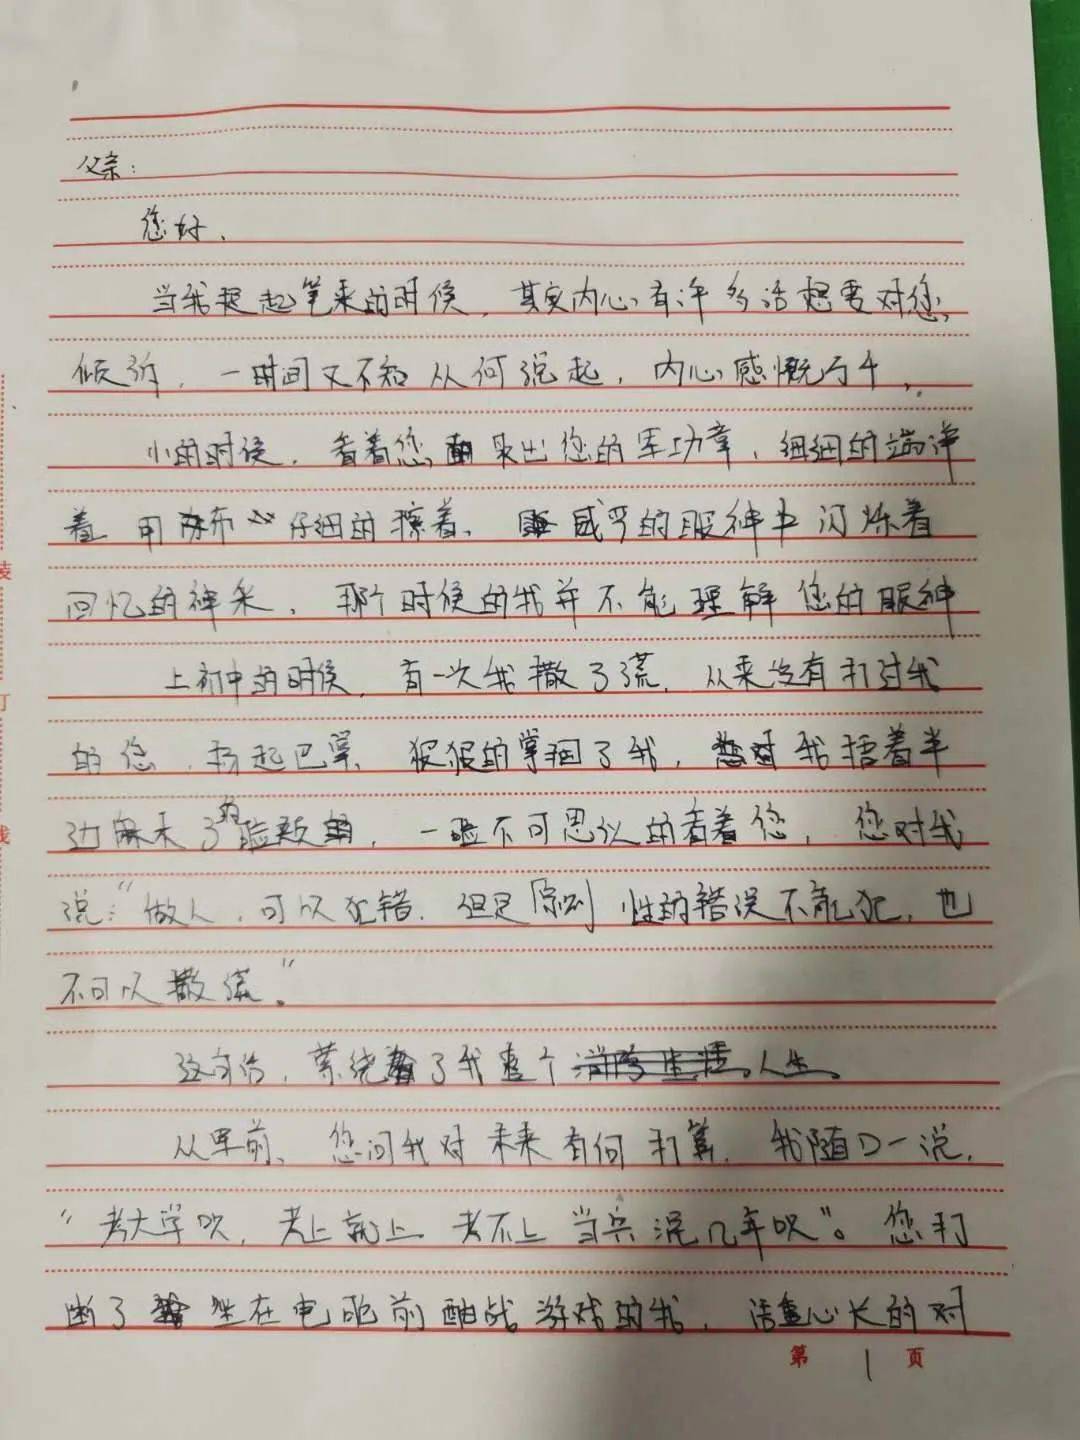 父亲：
您好、
当我提起笔来的时候，其实内心有许多话想要对您
倾诉，一时间又不知从何说起，内心感慨万千，
小的时候，看着您取出您的军功章，细细的端详
着，用麻布仔细的擦着、威严的眼神中闪烁着
回忆的神采，那个时候的我并不能理解您的眼神
上初中的时候，有一次我撒了谎，从来没有打过我
的您，扬起巴掌、狠狠的掌掴了我，我捂着半
边麻木了的脸颊，一脸不可思议的看着您，您对我
说：“做人，可以犯错，但是原则性的错误不能犯，也
不可以撒谎。”
这句话，萦绕了我整个人生。
从军前、您问我对未来有何打算，我随口一说，
“考大学呗，考上就上，考不上当兵混几年呗”。您打
断了坐在电脑前酣战游戏的我，语重心长的对
第 1 页
装
订
线